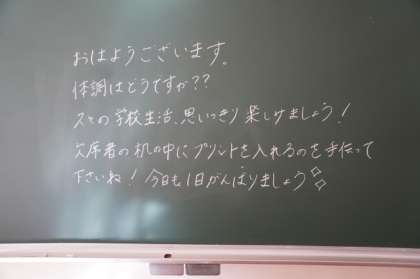 おはようございます。
体調はどうですか??
久々の学校生活、思いっきり楽しみましょう!
欠席者の机の中にプリントを入れるのを手伝って
下さいね! 今日も1日がんばりましょう